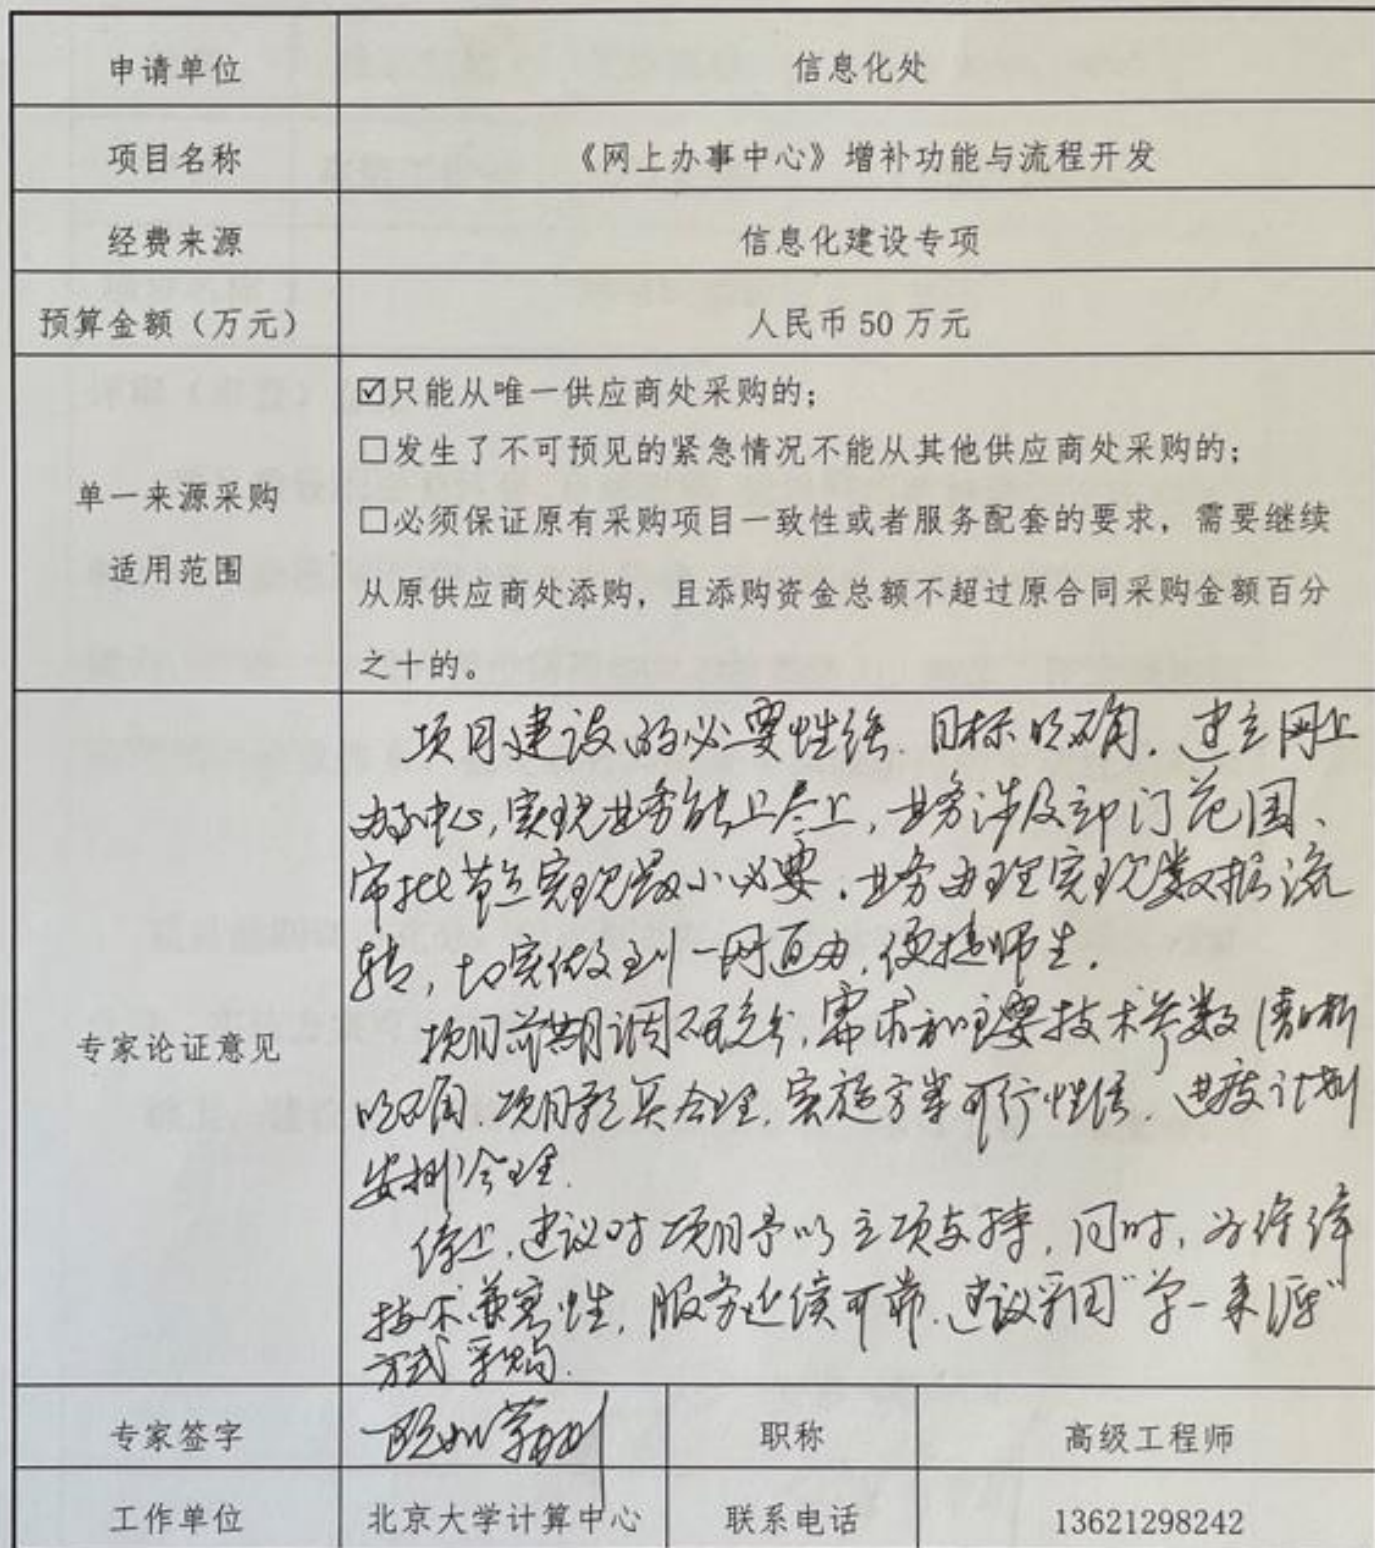 申请单位 信息化处
项目名称 《网上办事中心》增补功能与流程开发
经费来源 信息化建设专项
预算金额（万元） 人民币 50 万元
☑只能从唯一供应商处采购的；
□发生了不可预见的紧急情况不能从其他供应商处采购的；
单一来源采购
□必须保证原有采购项目一致性或者服务配套的要求，需要继续
适用范围
从原供应商处添购，且添购资金总额不超过原合同采购金额百分
之十的。
项目建设的必要性强，目标明确。建立网上
办事中心，实现业务能上尽上，业务涉及部门范围、
审批节点实现最小必要，业务办理实现数据流
转，切实做到一网通办，便捷师生。
专家论证意见
项目前期调研充分，需求和主要技术参数清晰
明确，项目预算合理，实施方案可行性强，进度计划
安排合理。
综上，建议对项目予以立项支持，同时，为保障
技术兼容性，服务延续可靠，建议采用“单一来源”
方式采购。
专家签字 职称 高级工程师
工作单位 北京大学计算中心 联系电话 13621298242